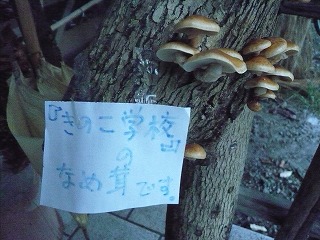 『きのこ学校』
の
なめ茸です。